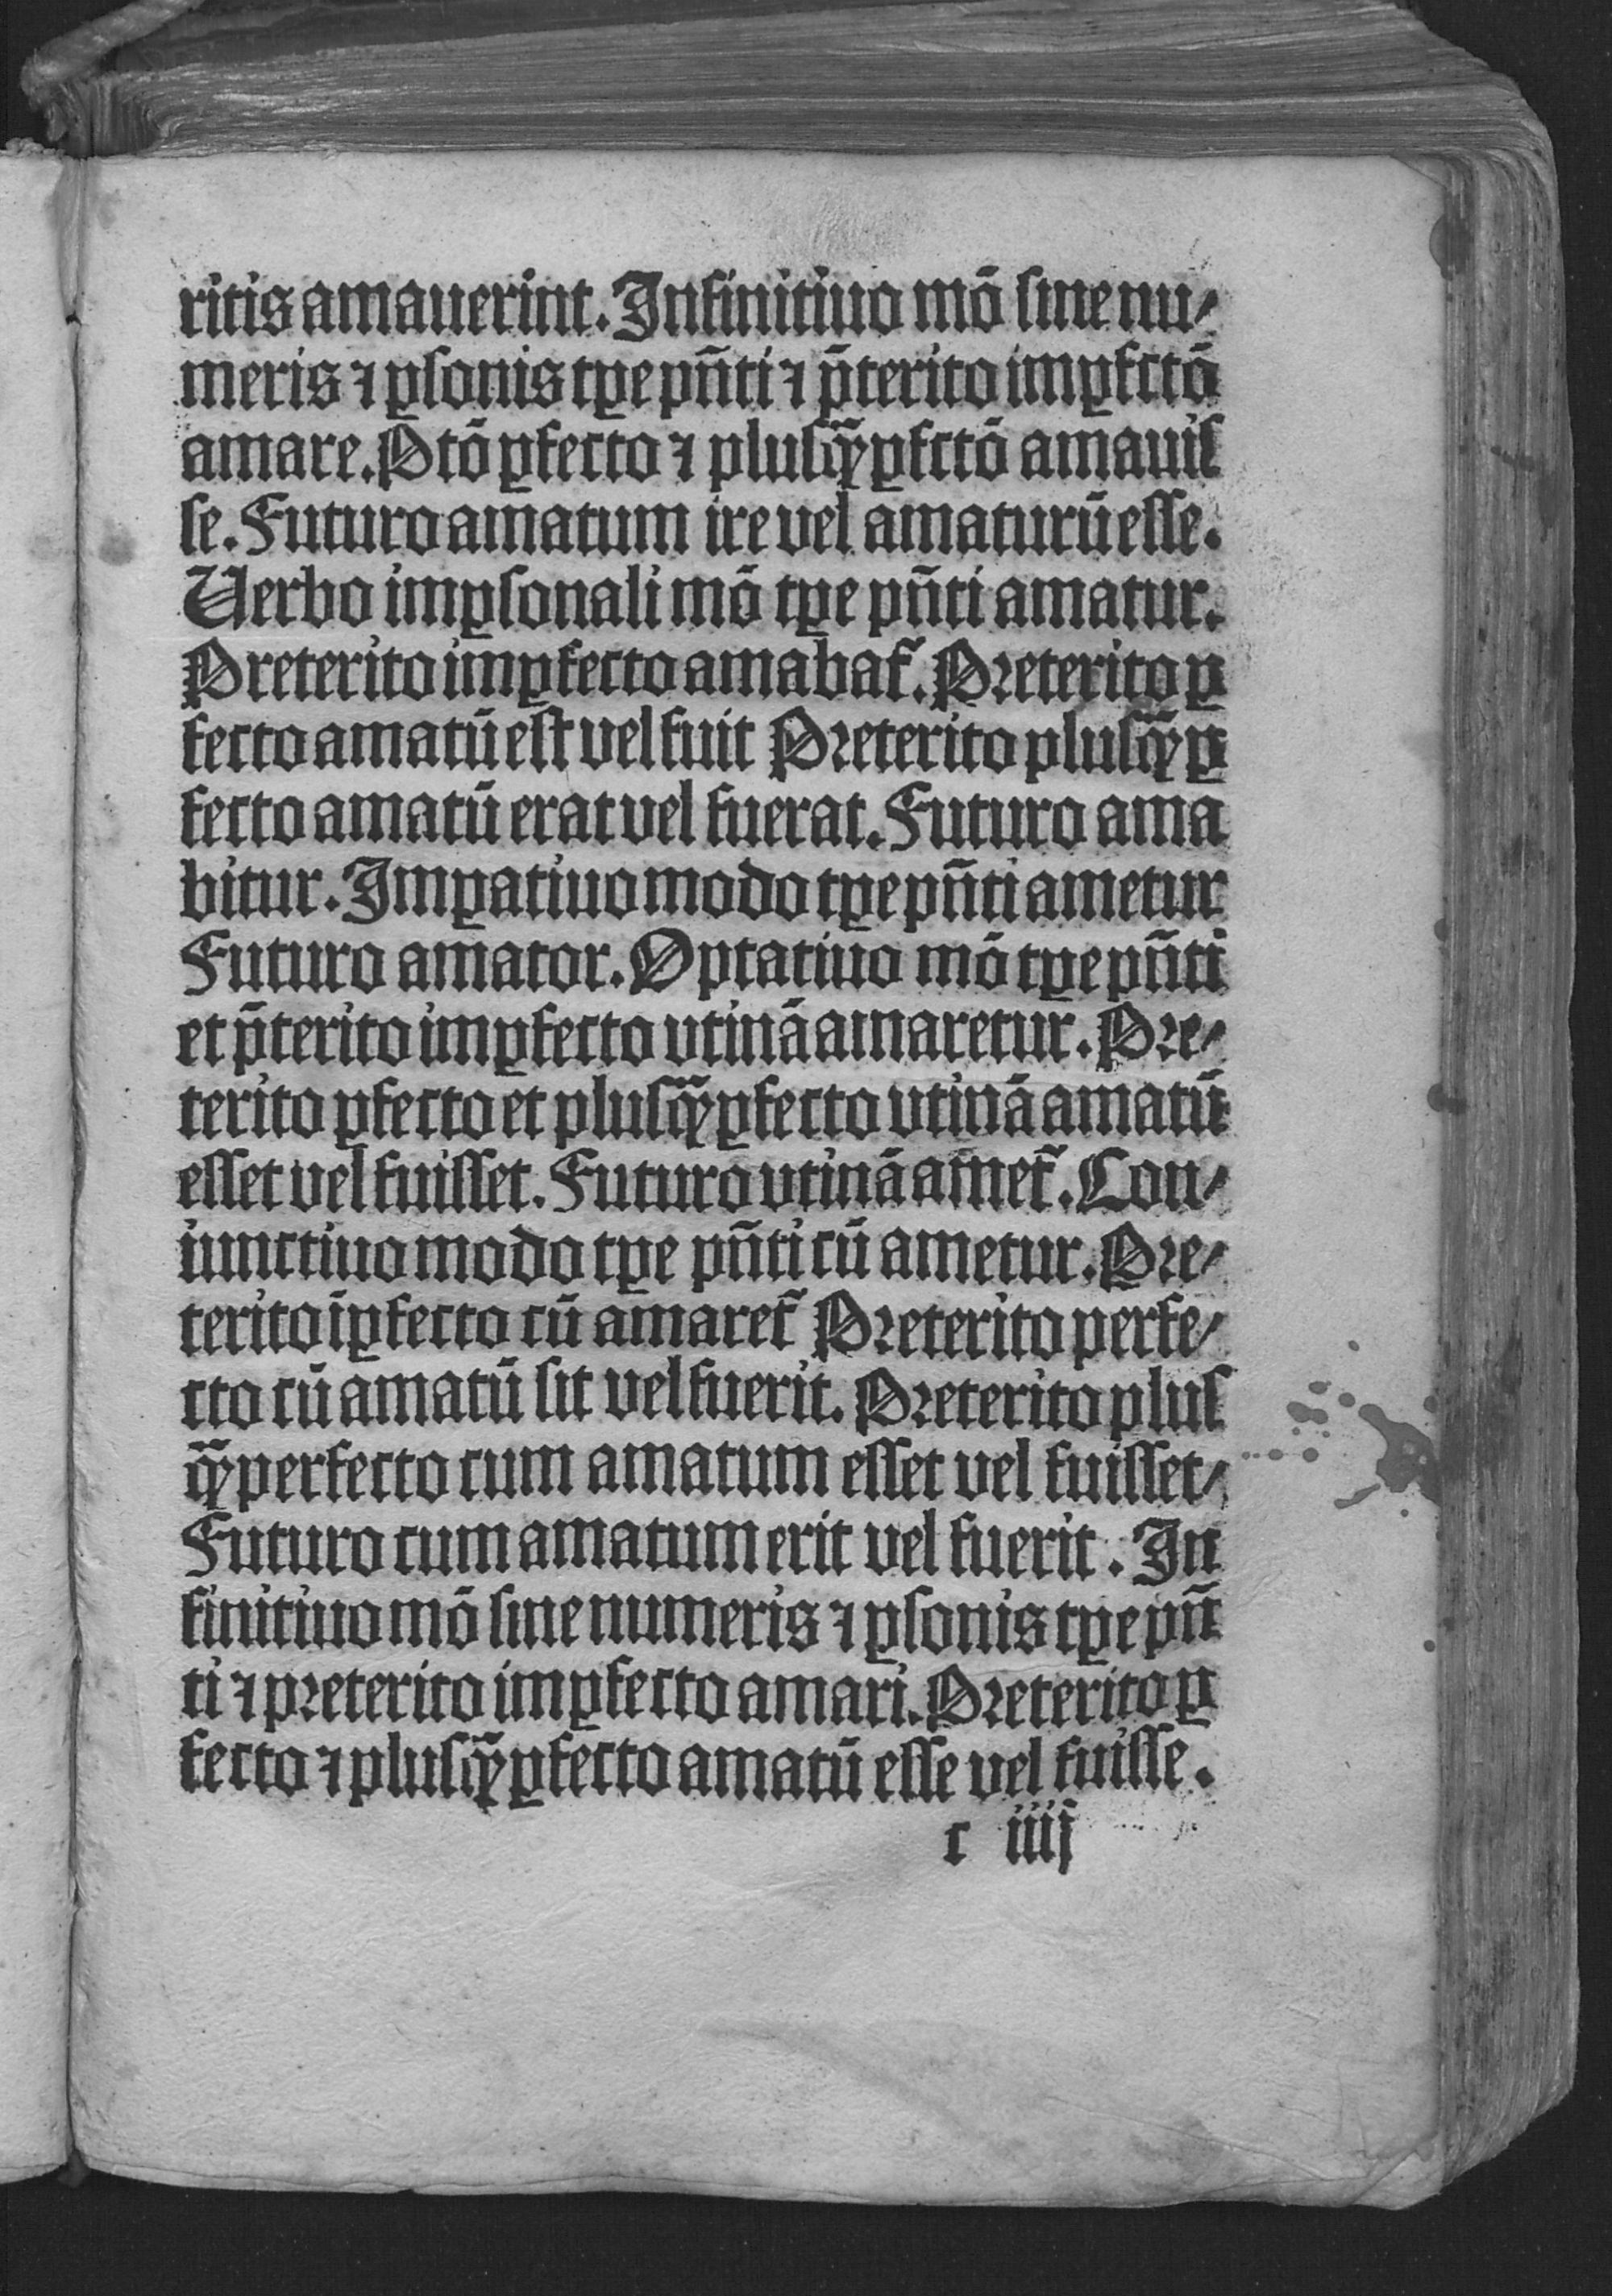 ritis amauerint. Infinitiuo mō ſine nu⸗
meris ⁊ ꝑſonis tꝑe pn̄ti ⁊ p̄terito imꝑfctō
amare. Ptō ꝑfecto ⁊ pluſꝙ̄ꝑfctō amauiſ
ſe. Futuro amatum ire vel amaturū eſſe.
Uerbo imꝑſonali mō tꝑe pn̄ti amatur.
Preterito imꝑfecto amabat᷑. Preterito ꝑ
fecto amatū eſt vel fuit Preterito pluſꝙ̄ꝑ
fecto amatū erat vel fuerat. Futuro ama
bitur. Imꝑatiuo modo tꝑe pn̄ti ametur
Futuro amator. Optatiuo mō tꝑe pn̄ti
et p̄terito imꝑfecto vtinā amaretur. Pre⸗
terito ꝑfecto et pluſꝙ̄ꝑfecto vtinā amatū
eſſet vel fuiſſet. Futuro vtinā amet᷑. Con⸗
iunctiuo modo tꝑe pn̄ti cū ametur. Pre⸗
terito īꝑfecto cū amaret᷑ Preterito perfe⸗
cto cū amatū ſit vel fuerit. Preterito pluſ
ꝙ̄perfecto cum amatum eſſet vel fuiſſet⸗
Futuro cum amatum erit vel fuerit. In
finitiuo mō ſine numeris ⁊ ꝑſonis tꝑe pn̄
ti ⁊ preterito imꝑfecto amari. Preterito ꝑ
fecto ⁊ pluſꝙ̄ꝑfecto amatū eſſe vel fuiſſe.
c iiij